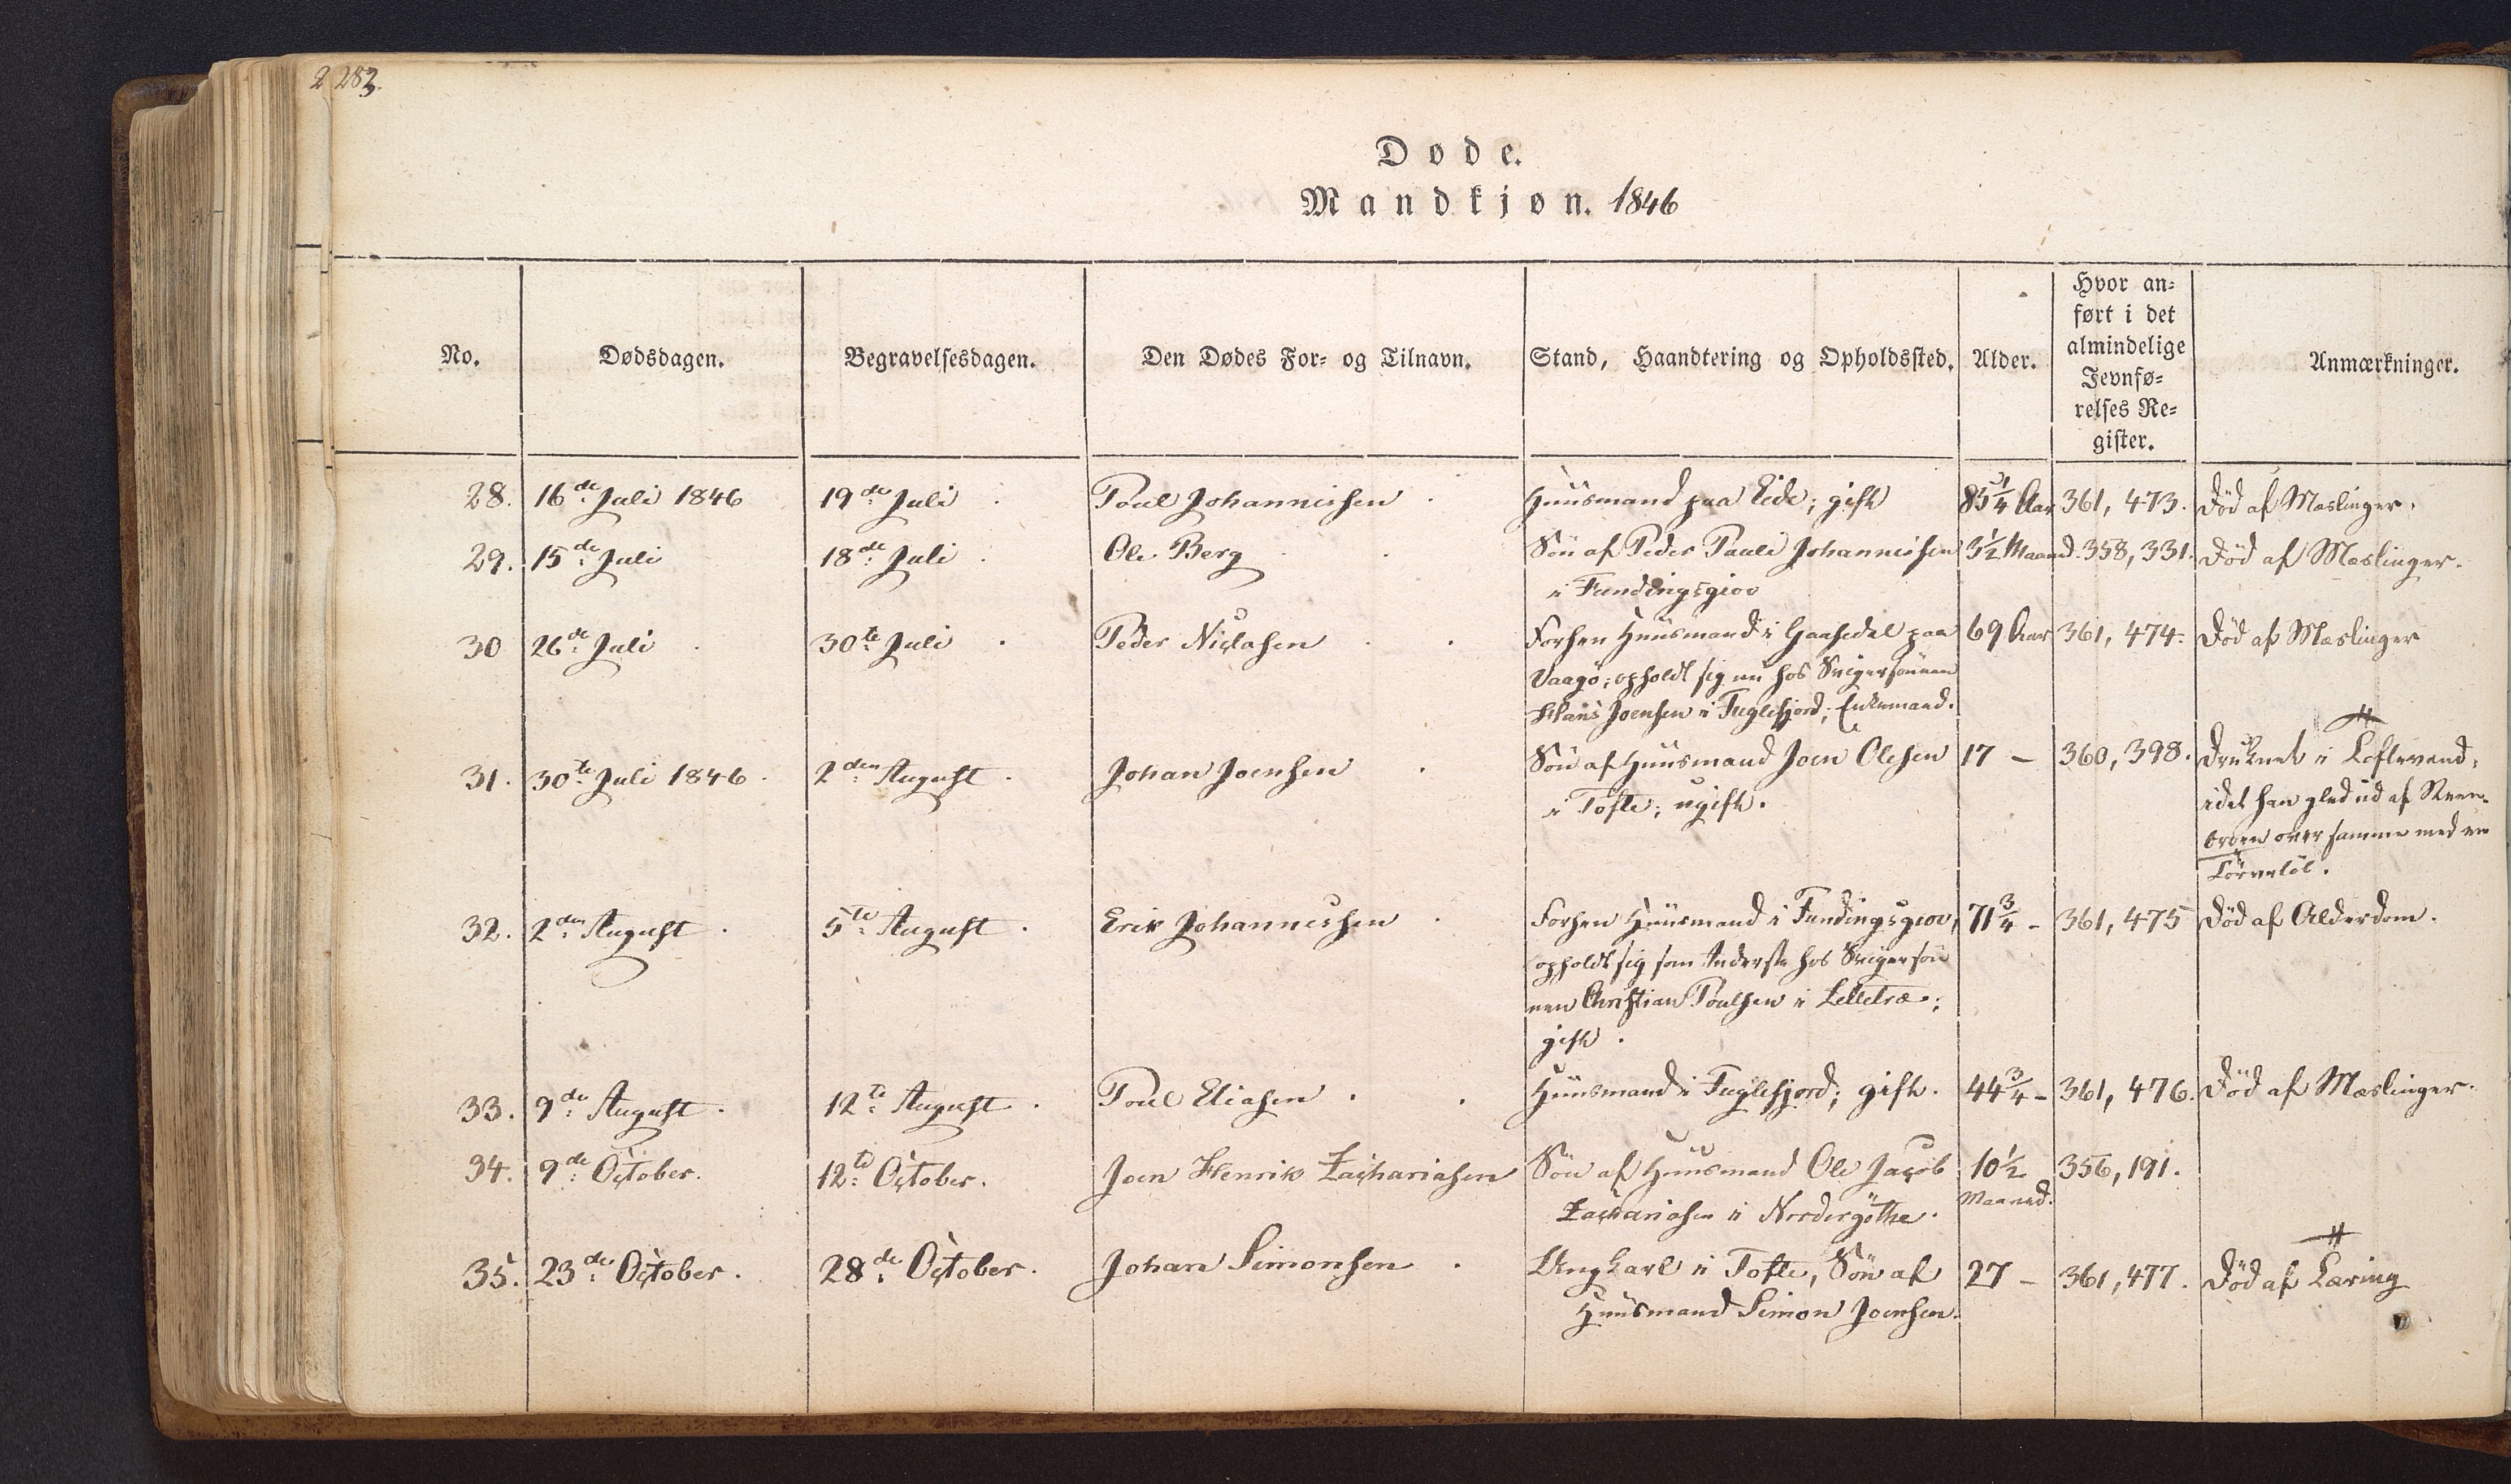 283.
Døde.
Mandkjøn. 1846
No.
Dødsdagen.
Begravelsesdagen.
Den Dødes For- og Tilnavn.
Stand, Haandtering og Opholdssted.
Alder.
Hvor an-
ført i det
almindelige
Jevnfø-
relses Re-
gister.
Anmærkninger.
28. 16de Juli 1846 19de Juli Poul Johannissen Huusmand paa Eide; gift 85 1/4 Aar 361, 473. Død af Mæslinger.
29. 15de Juli 18de Juli Ole Berg Søn af Peder Pauli Johannissen 3 1/2 Maaned. 358, 331. Død af Mæslinger.
i Fundingsgiov
30 26de Juli 30te Juli Peder Niclasen Forhen Huusmand i Gaasedal paa 69 Aar 361, 474. Død af Mæslinger
Vaagø; opholdt sig nu hos Svigersønnen
Hans Joensen i Fuglefjord; Enkemand.
31. 30te Juli 1846. 2den August Johan Joensen Søn af Huusmand Joen Olesen 17 - 360, 398. Druknet i
i Tofte; ugift. idet han gled ud af
over samme med en
32. 2den August 5te August Erik Johannessen Forhen Huusmand i Fundingsgiov, 71 3/4 - 361, 475 Død af Alderdom.
opholdt sig som Inderste hos Svigersøn
nen Christian Poulsen i Lelletræ;
gift.
33. 9de August. 12te August. Poul Eliasen Huusmand i Fuglefjord; gift. 44 3/4 - 361, 476. Død af Mæslinger.
34. 9de October. 12te October. Joen Henrik Zachariasen Søn af Huusmand Ole Jacob 10 1/2 356, 191.
Zachariasen i Nordergøthe. Maaned.
35. 23de October. 28de October. Johan Simonsen Ungkarl i Tofte, Søn af 27 - 361, 477. Død af Tæring
Huusmand Simon Joensen.